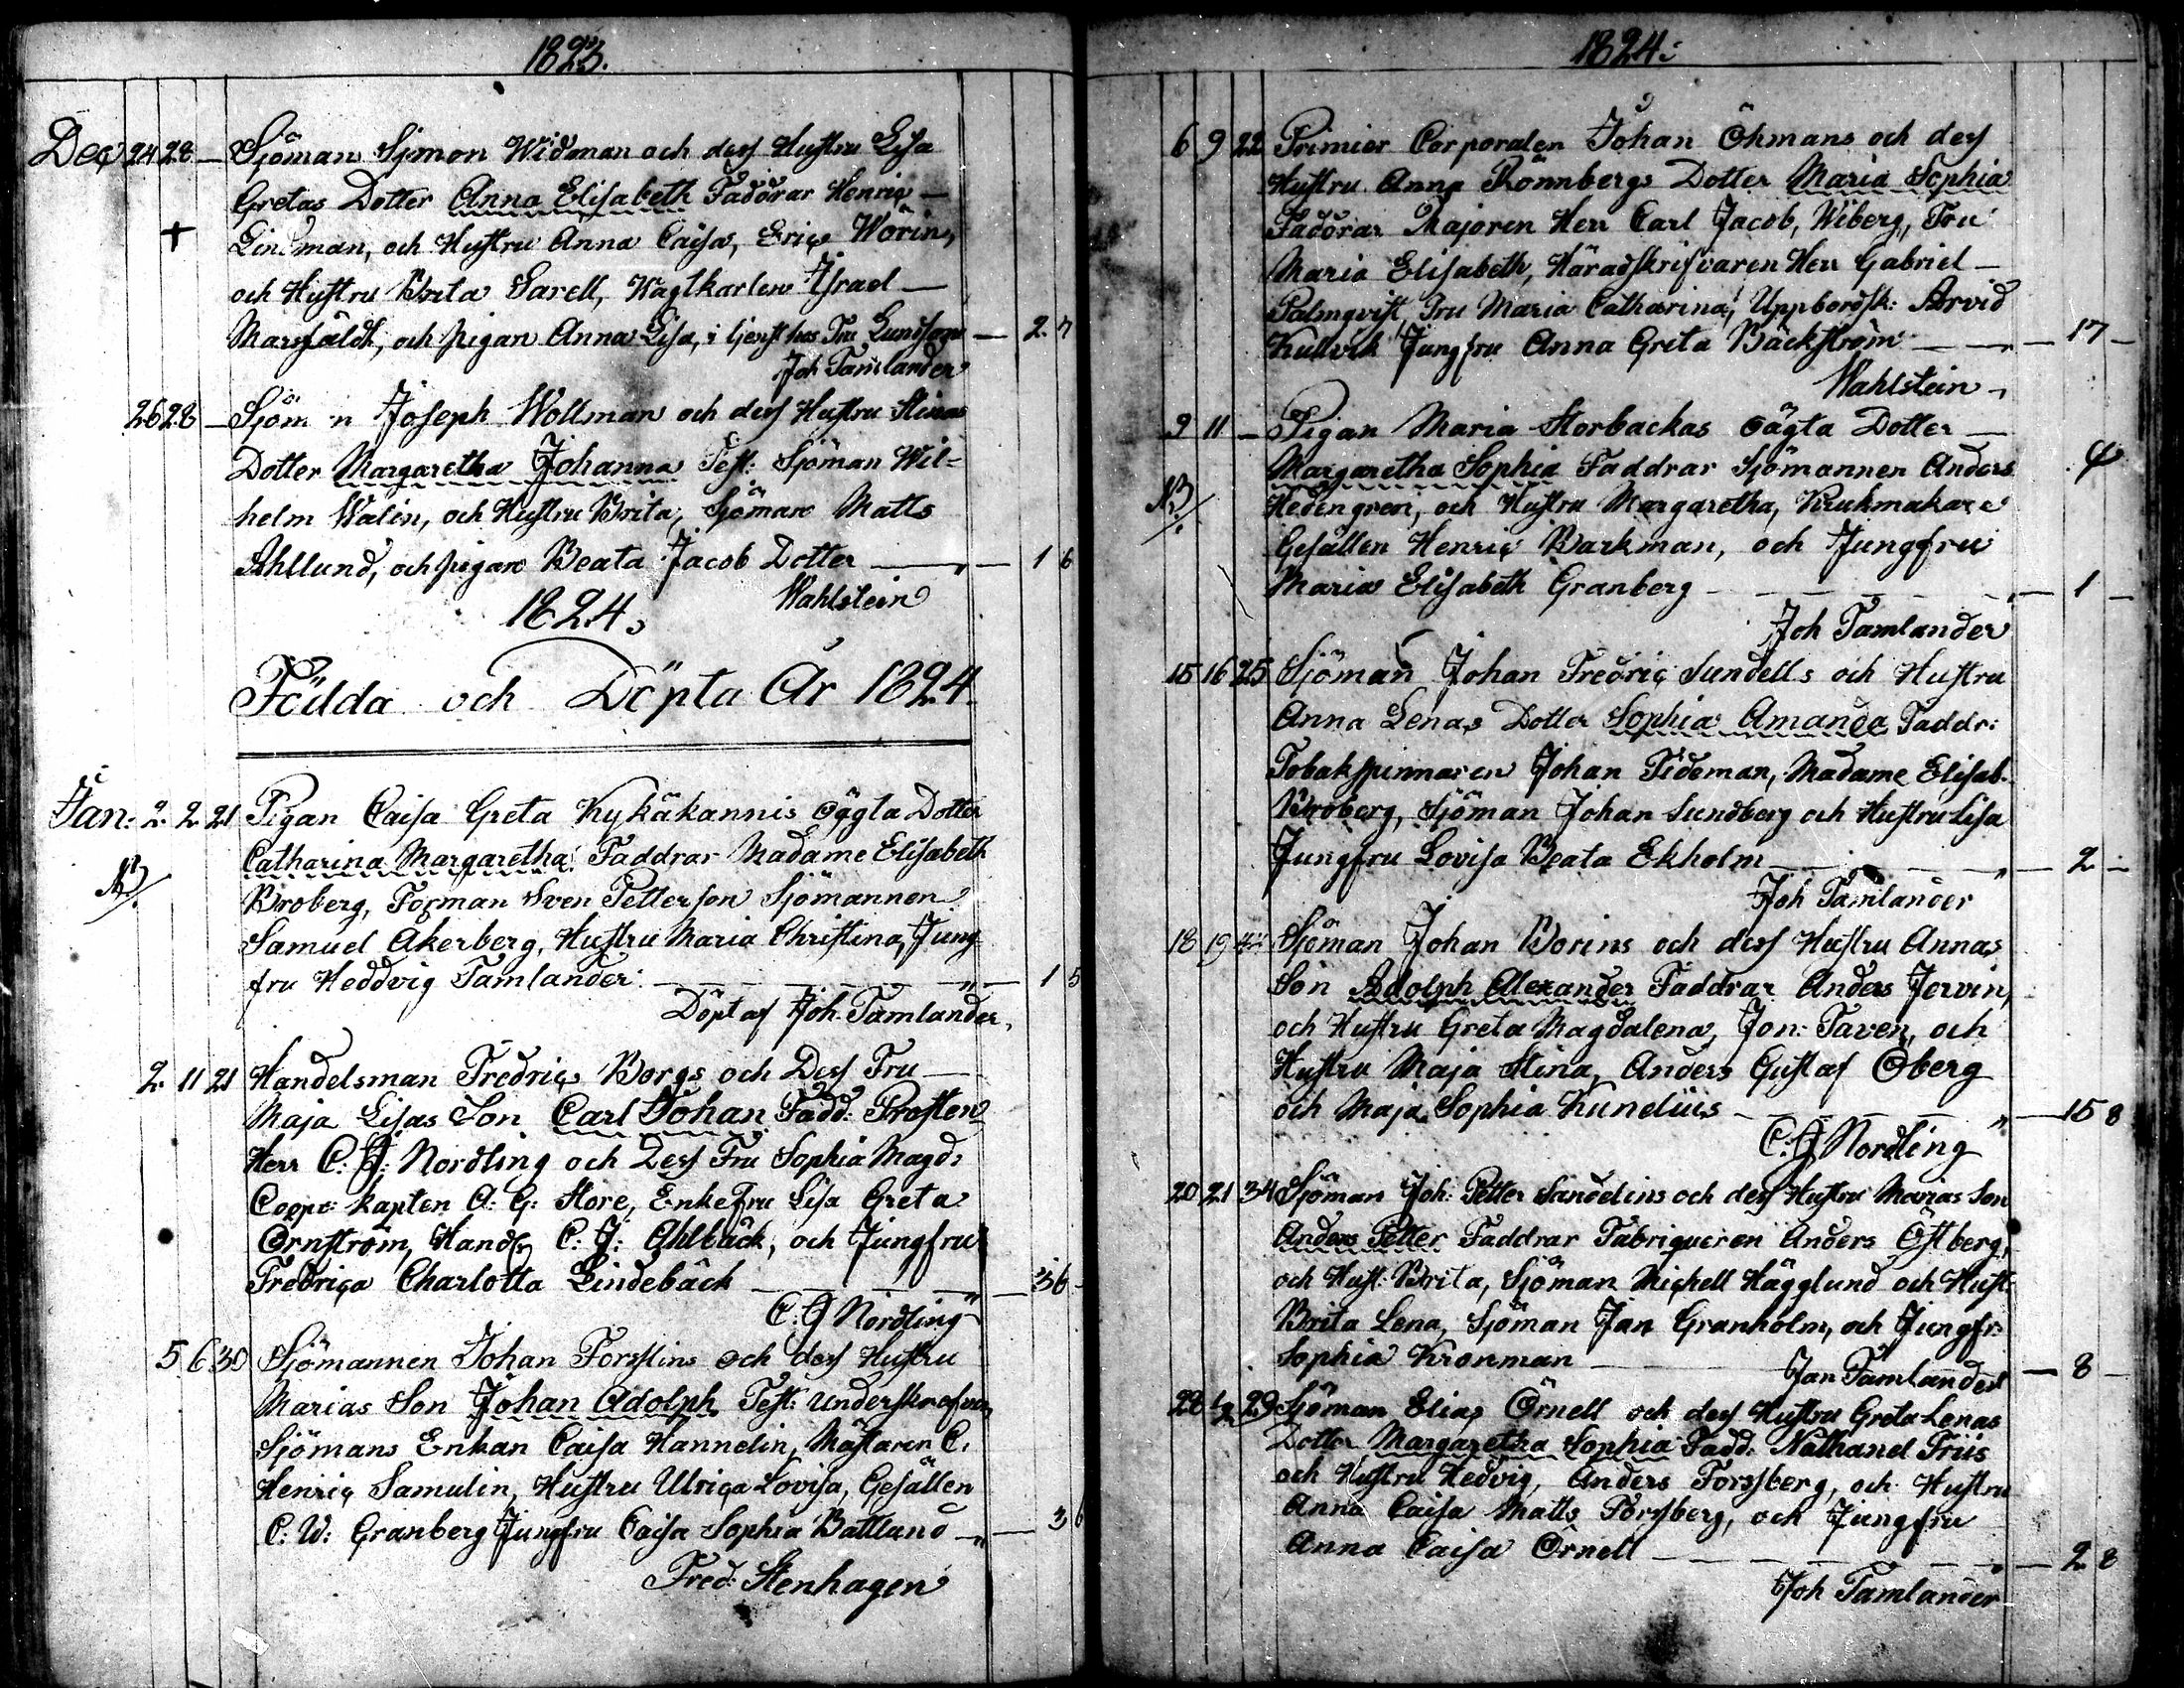 1823.
Dec 24 28 — Sjöman Simon Widman och dess Hustru Lisa
Gretas Dotter Anna Elisabeth Faddrar Henric —
+ Lindman, och Hustru Anna Caisa, Eric Worin,
och Hustru Brita Sarell, Wagtkarlen Israel —
och pigan Anna Lisa, i tjenst hos Fru — 2 7
Joh Tamlander
26 28 — Sjöm n Joseph Wollman och dess Hustru Stinas
Dotter Margaretha Johanna Test: Sjöman Wil=
helm Walin, och Hustru Brita, Sjöman Matts
Ahllund, och pigan Beata Jacob Dotter — „ — 1 6
Wahlstein
1824.
Födda och Döpta År 1824.
Jan: 2. 2. 21 Pigan Caisa Greta Kykäkannis oägta Dotter
Catharina Margaretha Faddrar Madame Elisabeth
NB/. Broberg, Forman Sven Petterson Sjömannen
Samuel Akerberg, Hustru Maria Christina, Jung
fru Heddvig Tamlander — „ — 1 5
Döpt af Joh. Tamlander.
2. 11 21 Handelsman Fredric Borgs och Dess Fru —
Maja Lisas Son Carl Johan Fadd: Prosten
Herr C: J: Nordling och Dess Fru Sophia Magd:
Coope: kapten A: G: Store, Enkefru Lisa Greta
Örnström, Handl: C: J: Ahlbäck, och Jungfru
Fredrica Charlotta Lindebäck — „ — 36 -
C: J Nordling
5 6 30 Sjömannen Johan Forsslins och dess Hustru
Marias Son Johan Adolph Test: underskrefven
Sjömans Enkan Caisa Hannelin, Mästaren C.
Henric Samulin, Hustru Ulrica Lovisa, Gesällen
C: W: Granberg Jungfru Caisa Sophia Battlund — „ — 3 6
Fred: Stenhagen
1824:
6 9 22 Primier Corporalen Johan Öhmans och dess
Hustru Anna Rönnbergs Dotter Maria Sophia
Faddrar Majoren Herr Carl Jacob, Wiberg, Fru
Maria Elisabeth, Häradskrifvaren Herr Gabriel —
Palmqvist, Fru Maria Catharina, Uppbordsk: Arvid
Kullvik Jungfru Anna Greta Bäckström — „ — 17 —
Wahlstein
9 11 — Pigan Maria Storbackas oägta Dotter —
Margaretha Sophia Faddrar Sjömannen Anders
NB/. Hedengren, och Hustru Margaretha, Krukmakare
Gesällen Henric Barkman, och Jungfru
Maria Elisabeth Granberg — „ — 1 —
Joh Tamlander
15 16 25 Sjöman Johan Fredric Sundells och Hustru
Anna Lenas Dotter Sophia Amanda Faddr:
Tobakspinnaren Johan Tideman, Madame Elisab.
Broberg, Sjöman Johan Sundberg och Hustru Lisa
Jungfru Lovisa Beata Ekholm — „ — 2 —
Joh Tamlander
18 19 Sjöman Johan Borins och dess Hustru Annas
Son Adolph Alexander Faddrar Anders Jervin,
och Hustru Greta Magdalena, Jon: Taven, och
Hustru Maja Stina, Anders Gustaf Öberg
och Maja Sophia Kunelius — „ — 15 8
C: J Nordling
20 21 34 Sjöman Joh: Petter Sandelins och dess Hustru Marias Son
Anders Petter Faddrar Fabriqueren Anders Östberg,
och Hust: Brita, Sjöman Michell Hägglund och Hust:
Brita Lena, Sjöman Jan Granholm, och Jungfr:
Sophia Kronman — 8 —
Jan Tamlander
28 29 Sjöman Elias Örnell och dess Hustru Greta Lenas
Dotter Margaretha Sophia Fadd: Nathanel Friis
och Hustru Hedvig, Anders Forssberg, och Hustru
Anna Caisa Matts Forssberg, och Jungfru
Anna Caisa Örnell — „ — 2 8
Joh Tamlander